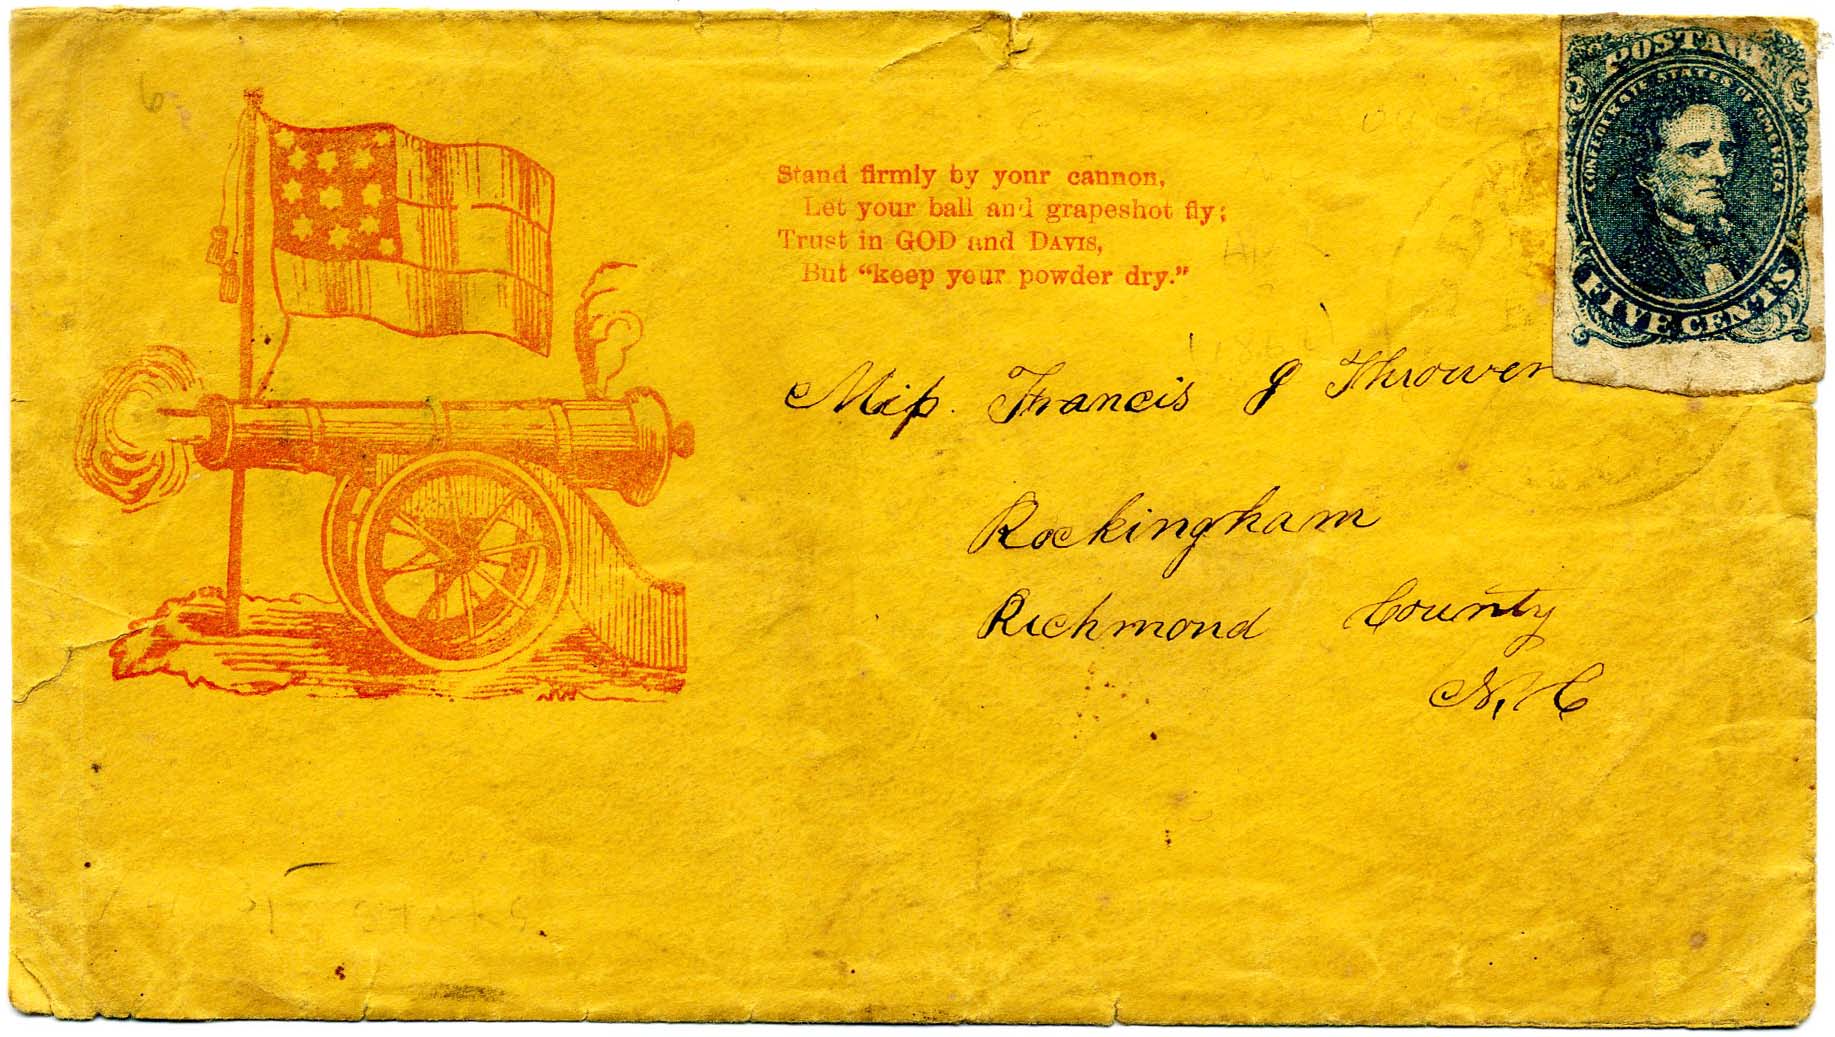 POSTAGE
CONFEDERATE STATES OF AMERICA
FIVE CENTS
Stand firmly by yonr cannon,
Let your ball and grapeshot fly;
Trust in GOD and DAVIS,
But “keep your powder dry.”
Miſs. Francis J Thrower
Rockingham
Richmond County
N, C
6